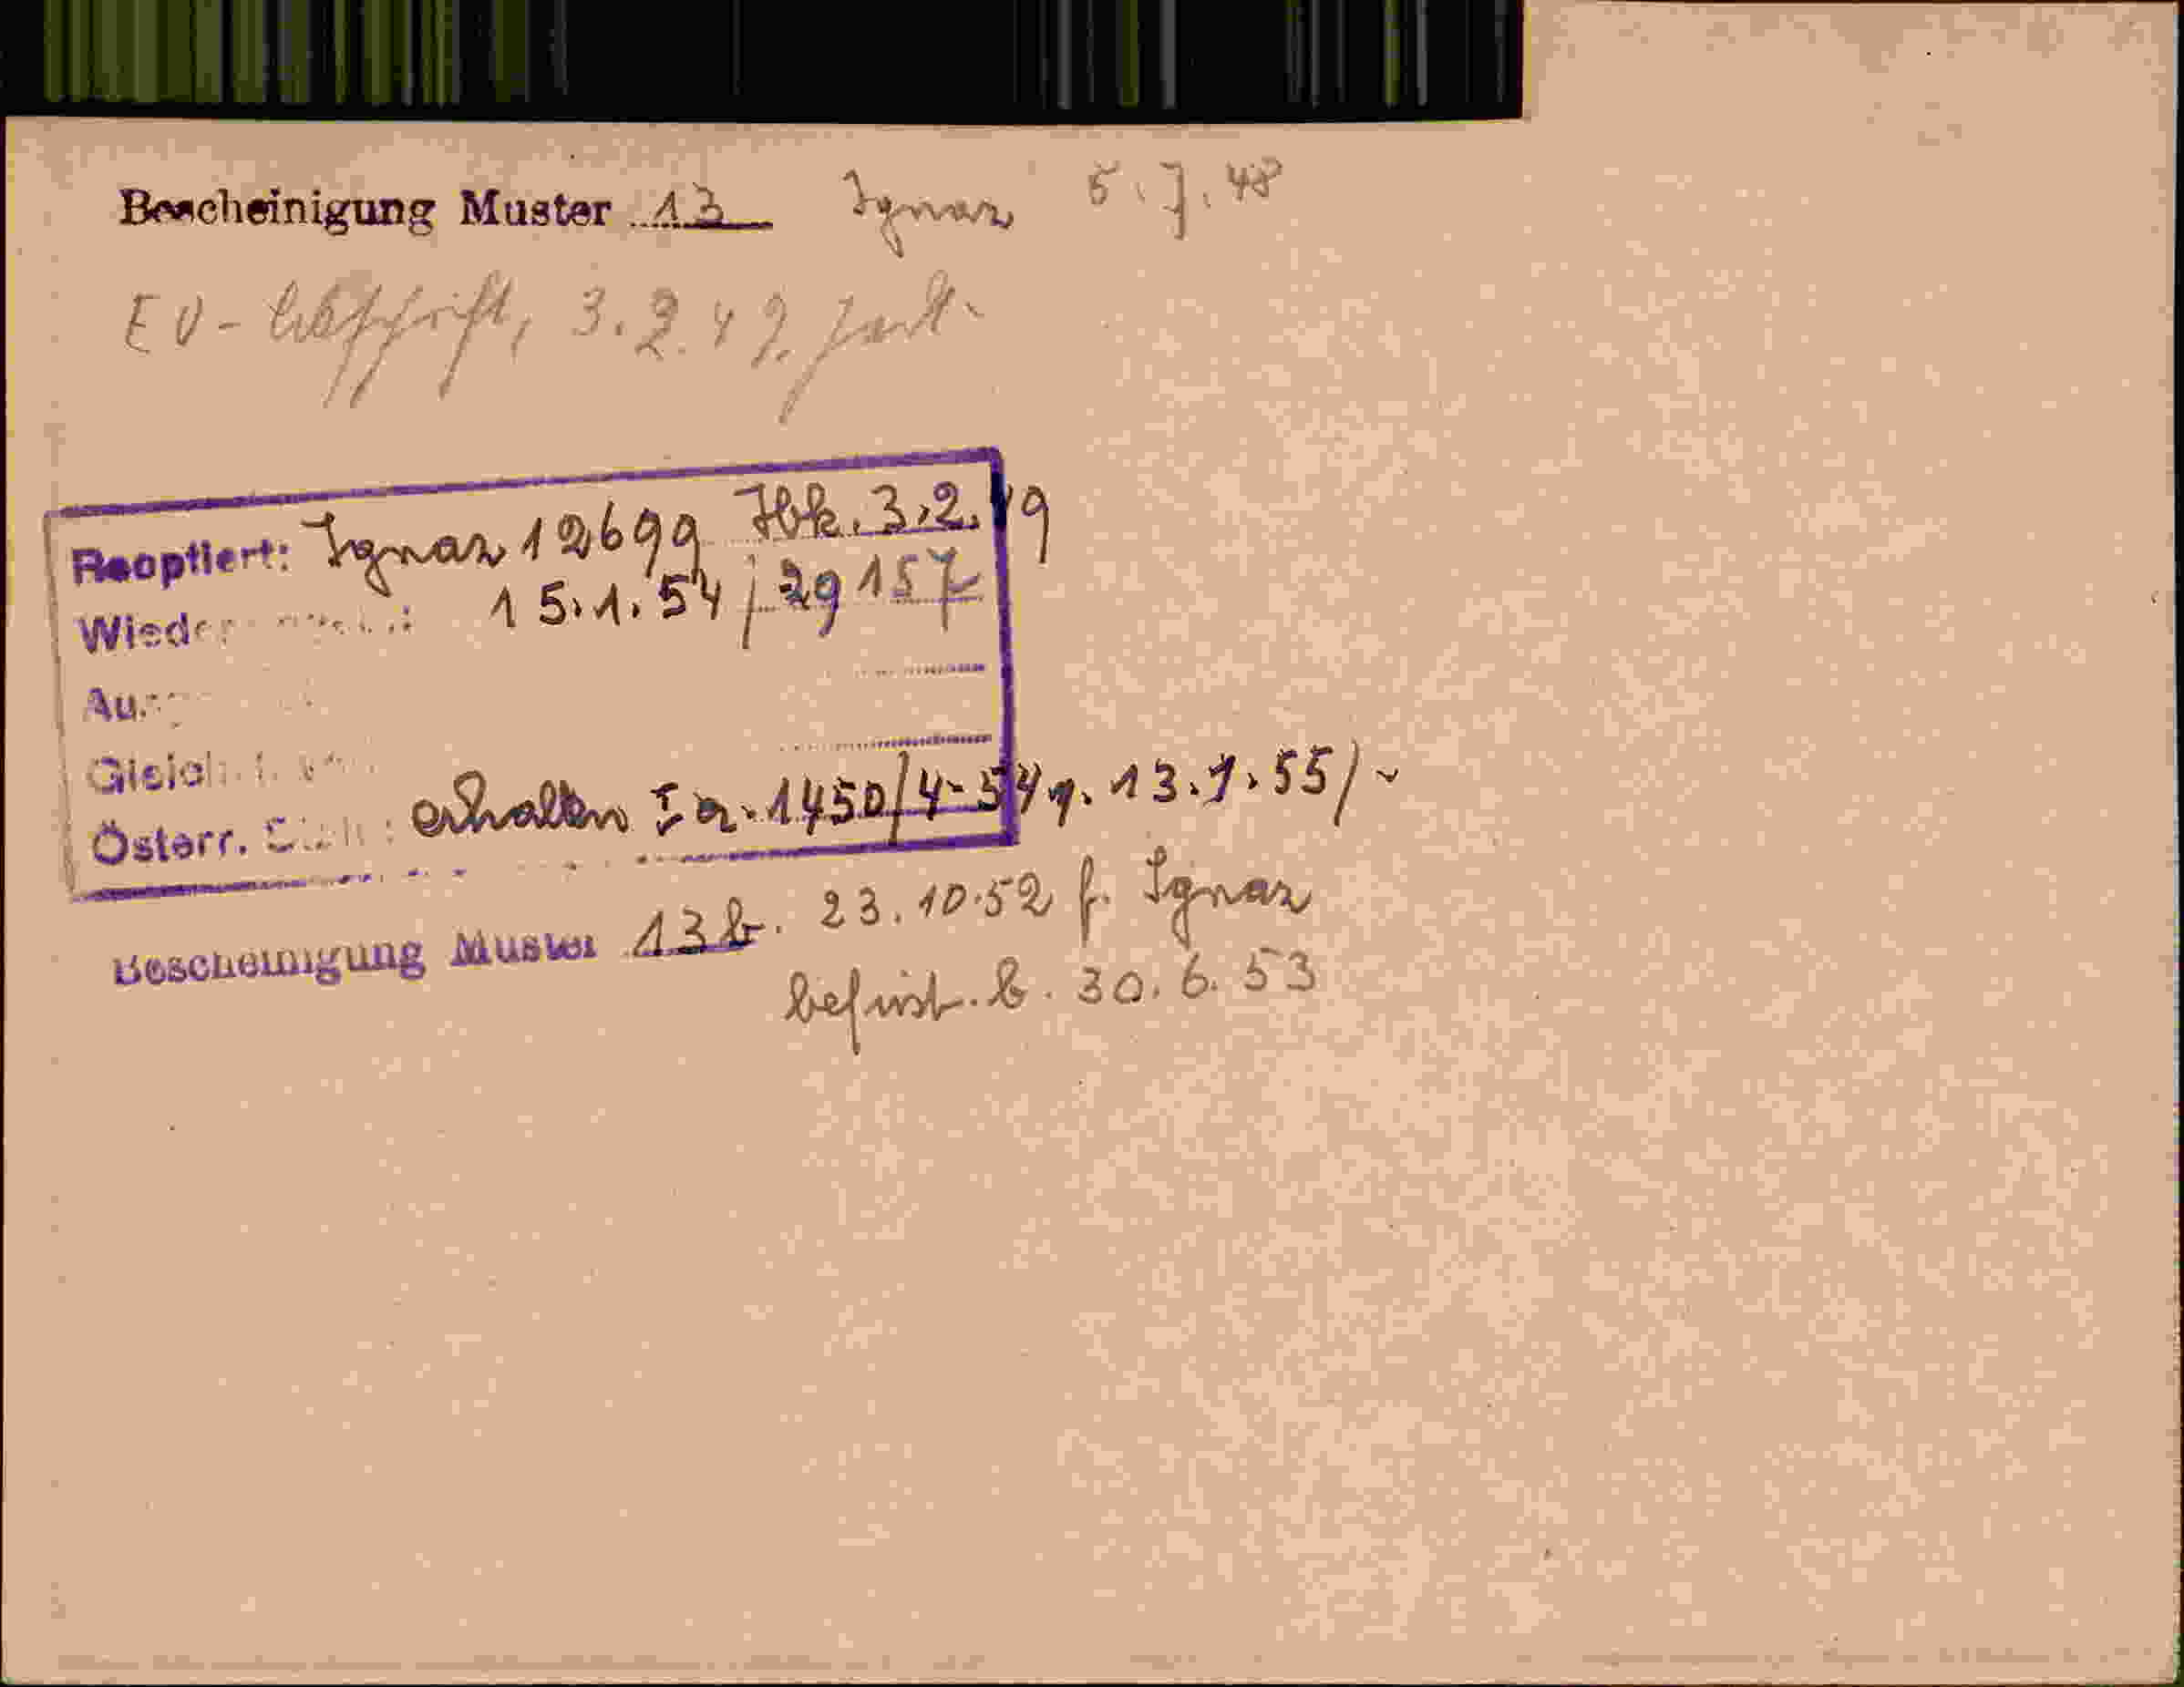 Bescheinigung Muster 13 Ignaz 5.7.48
EV-Abschrift, 3.2.49.
Reoptiert: Ignaz 12699 Hk. 3.2.49
15.1.54 / 29157
Österr. erhalten 1450/4-54 13.1.55/
Bescheinigung Muster 13b. 23.10.52 f. Ignaz
befrist. b. 30.6.53